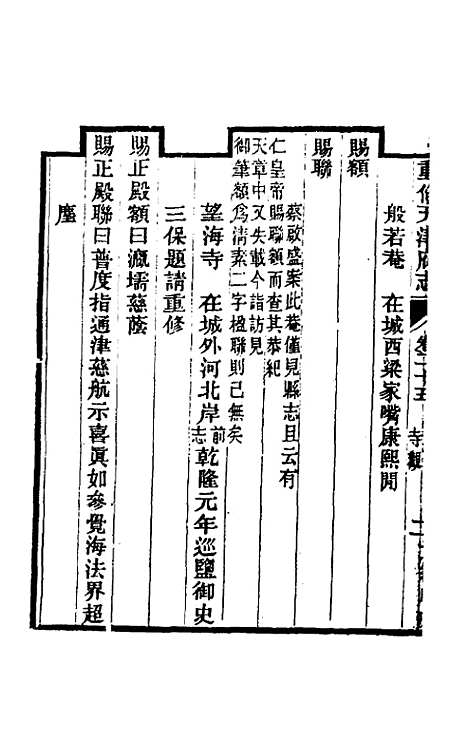 重修天津府志 卷二十五 寺觀
般若菴　在城西梁家嘴康熙閒
賜額
賜聯
蔡啟盛案此菴僅見縣志且云有
仁皇帝賜聯額而查其恭紀
天章中又失載今詣訪見
御筆額爲淸素二字楹聯則已無矣
望海寺　在城外河北岸前志乾隆元年巡鹽御史
三保題請重修
賜正殿額曰瀛壖慈蔭
賜正殿聯曰普度指通津慈航示喜眞如參覺海法界超
塵